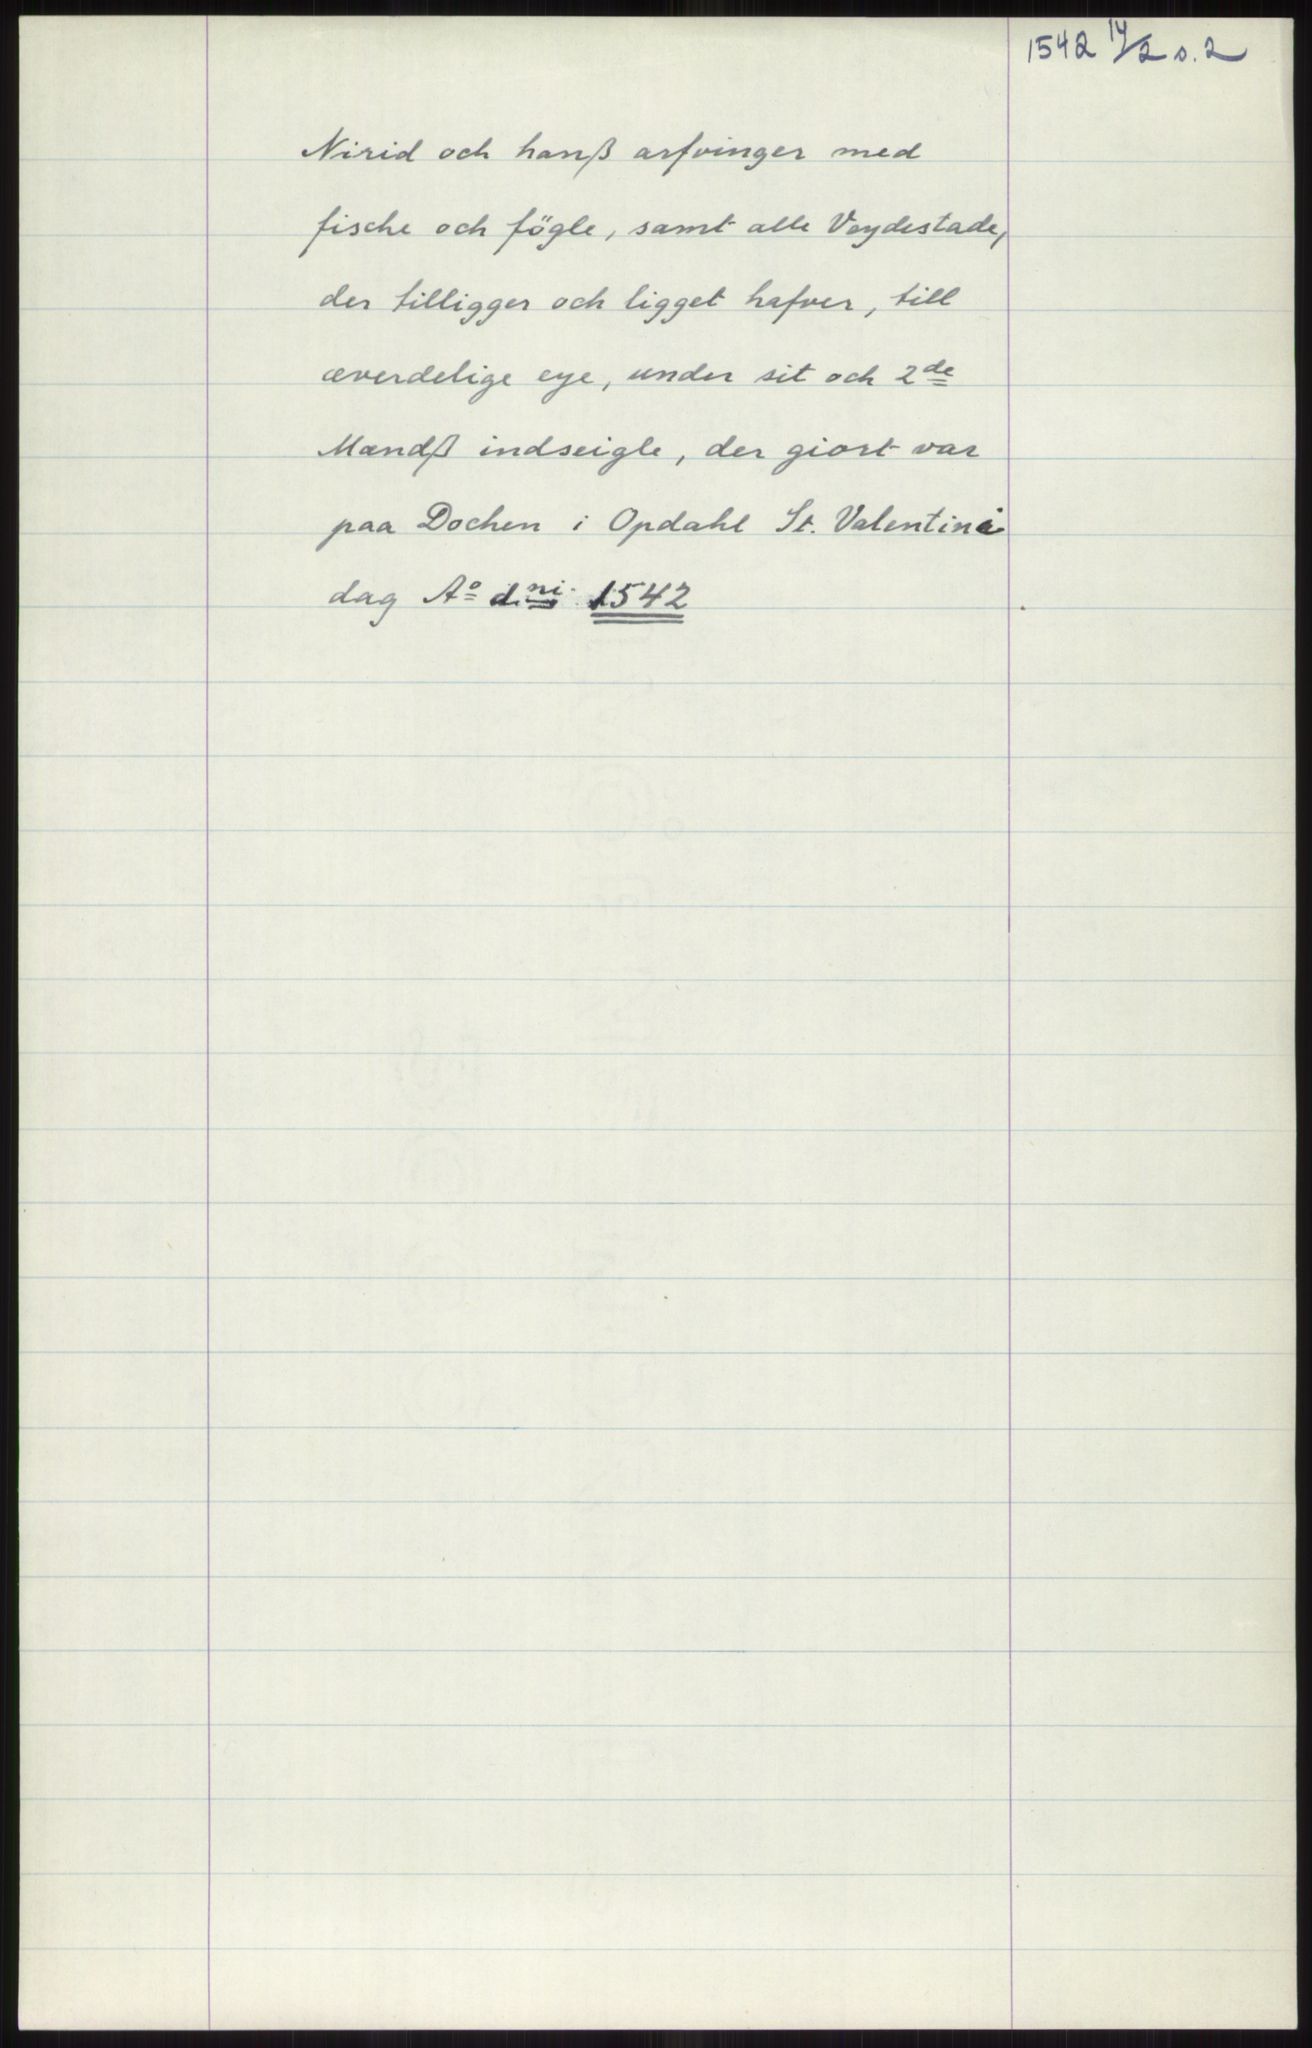 1542 14/2 s. 2
Nirid och hanß arfvinger med
fische och fögle, samt alle Veydestade,
der tilligger och ligget hafver, till
æverdelige eye, under sit och 2de
Mandß indseigle, der giort var
paa Dochen i Opdahl St. Valentini
dag Ao dni 1542